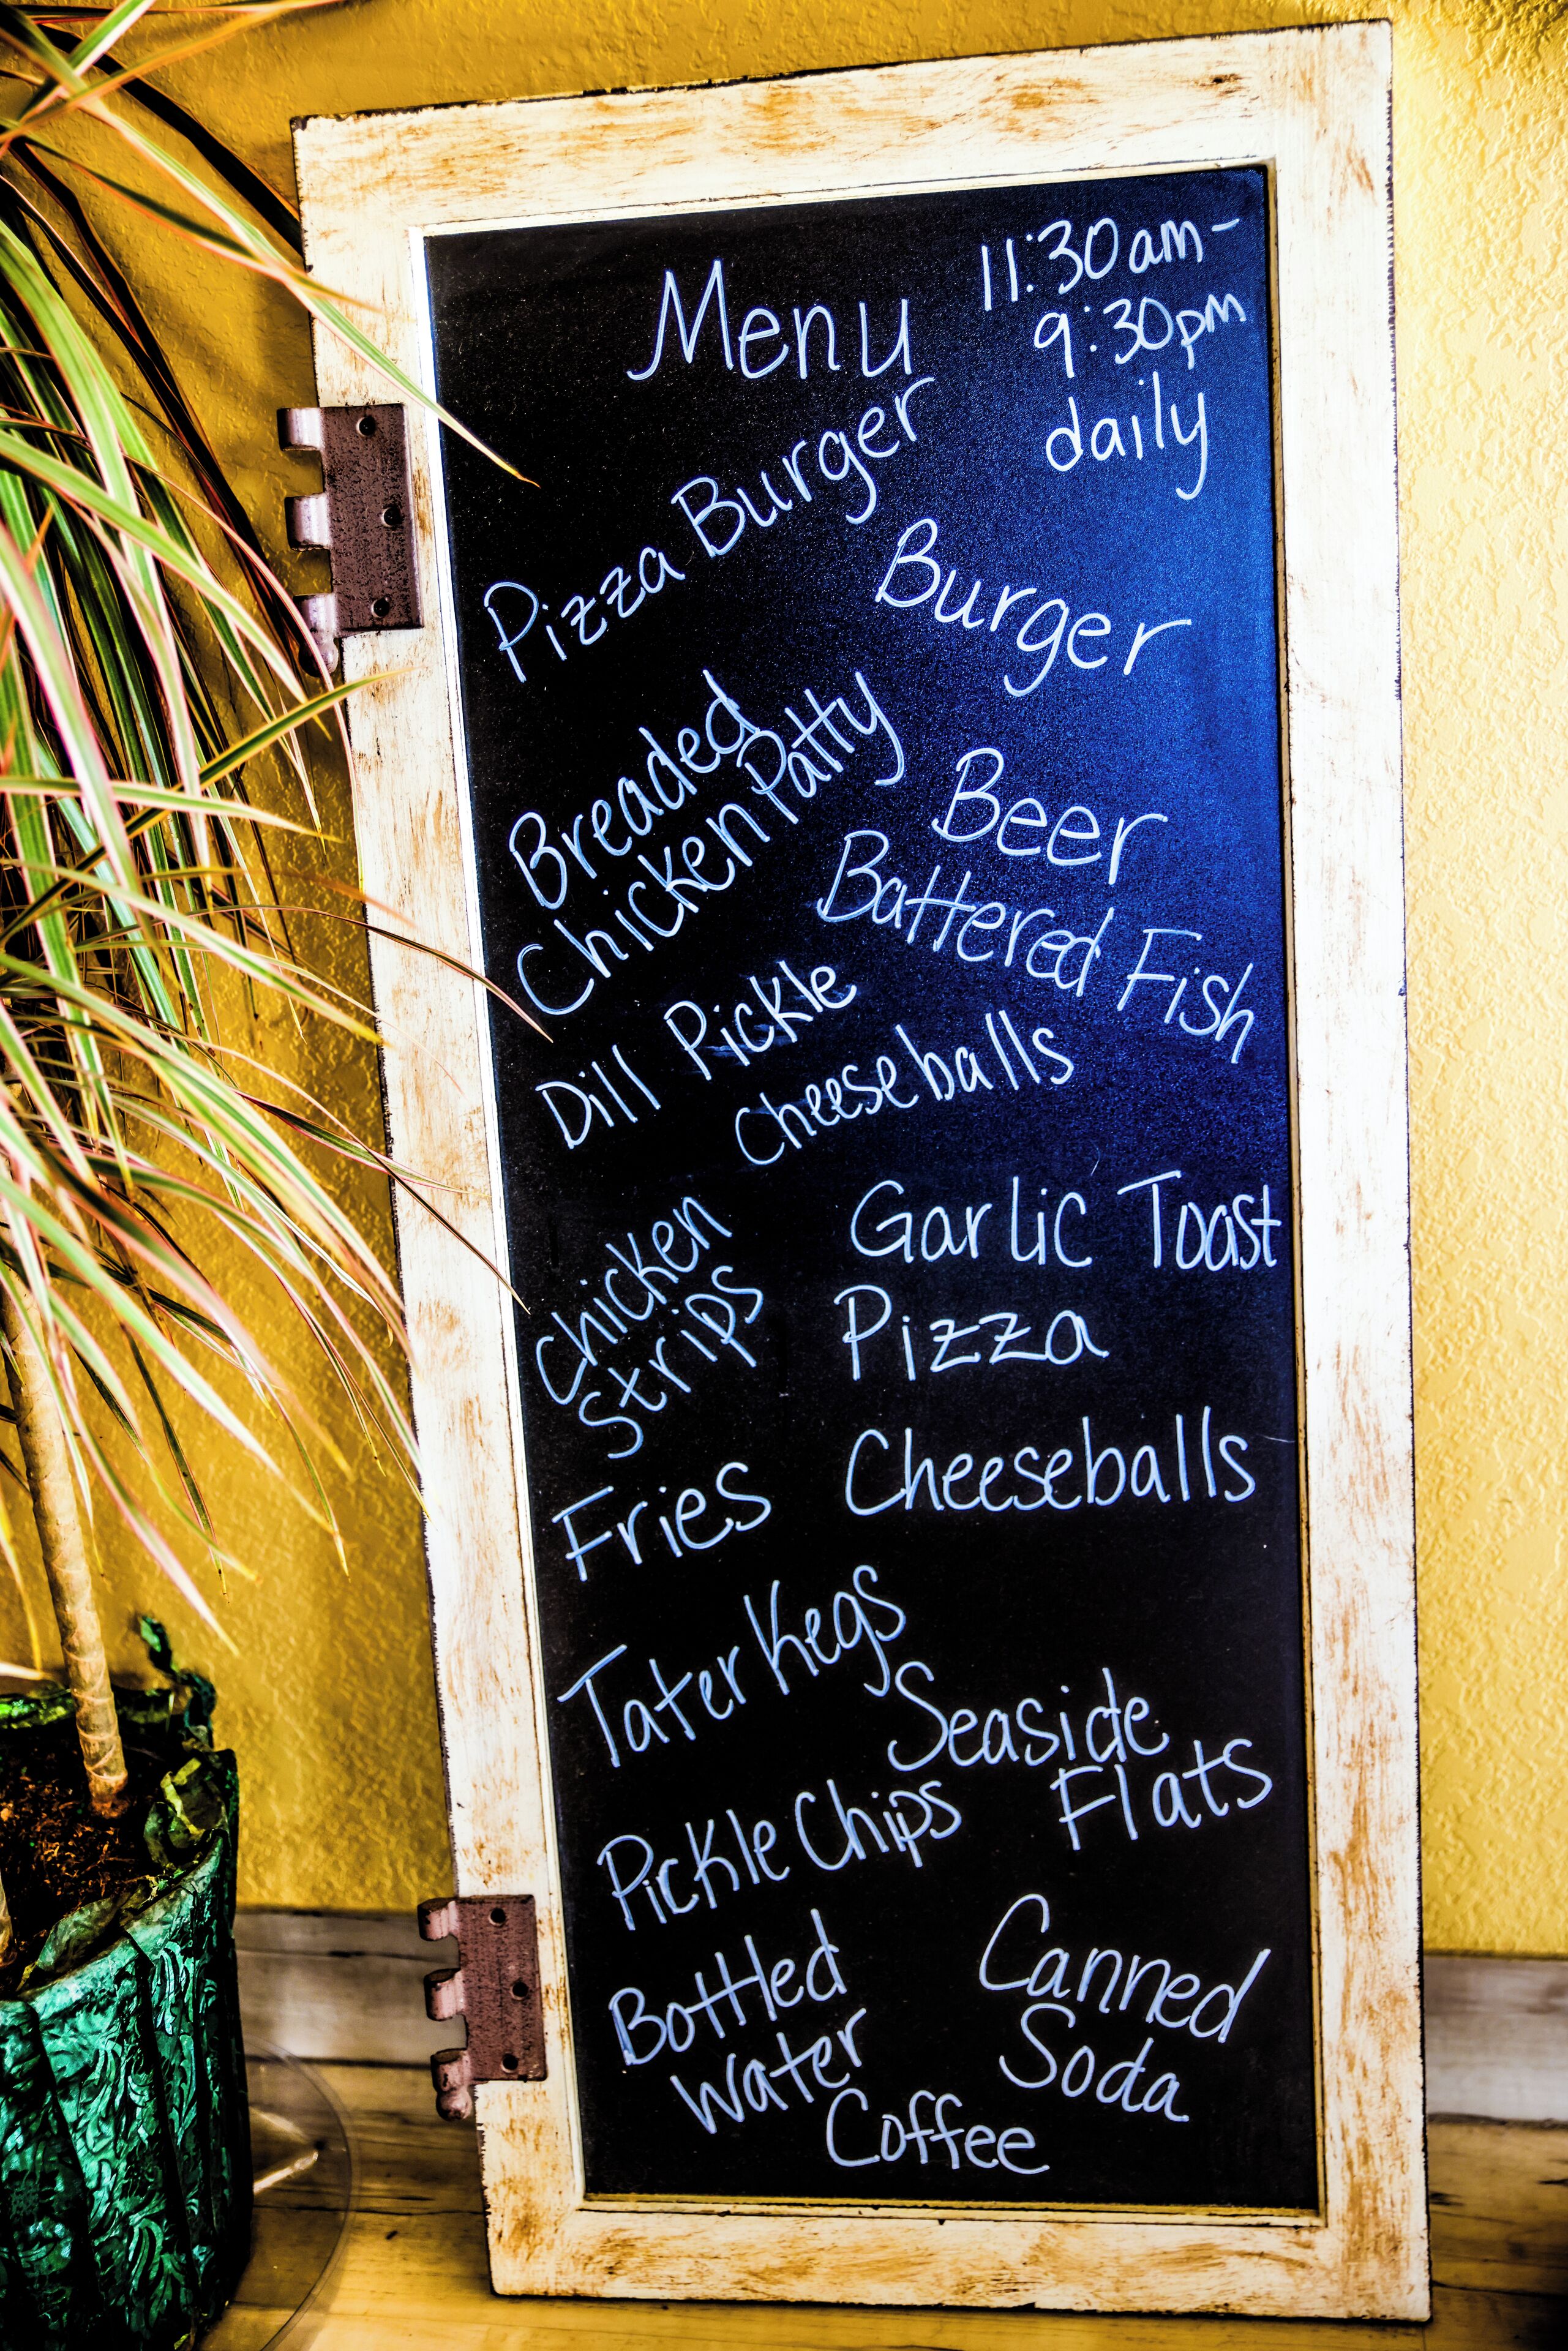 Menu
11:30am-
9:30pm
daily
Pizza Burger
Burger
Breaded
Chicken Patty
Beer
Battered Fish
Dill Pickle
Cheeseballs
Chicken
Strips
Garlic Toast
Pizza
Fries
Cheeseballs
Tater Kegs
Seaside
Flats
Pickle Chips
Bottled
Water
Canned
Soda
Coffee